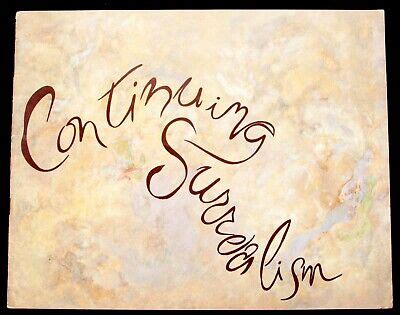 Continuing
Surrealism